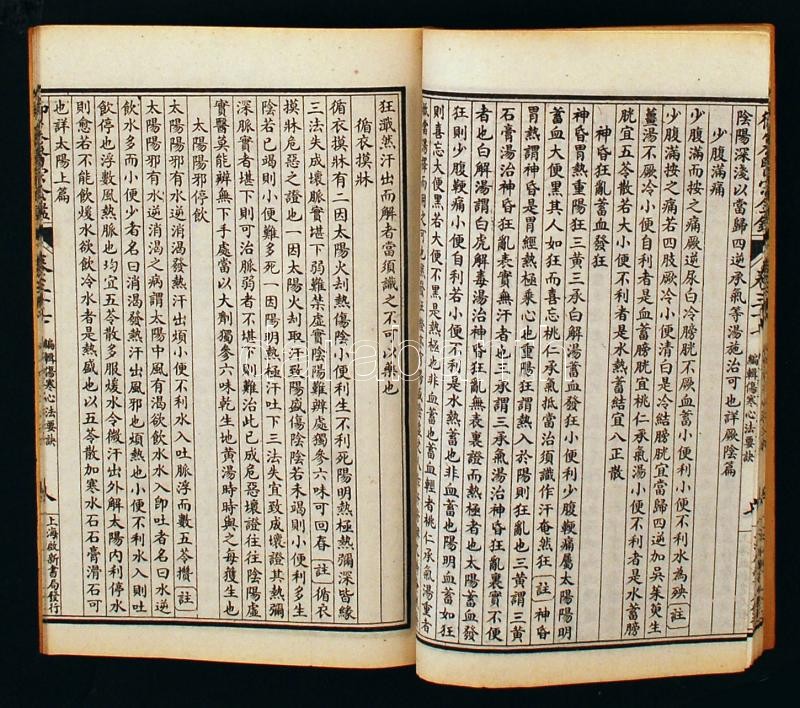 陰陽深淺以當歸四逆承氣等湯施治可也詳厥陰篇
少腹滿痛
少腹滿而按之痛厥逆尿白冷膀胱不厥血蓄小便利小便不利水為殃註
少腹滿按之痛若四肢厥冷小便清白是冷結膀胱宜當歸四逆加吳茱萸生
薑湯不厥冷小便自利者是血蓄膀胱宜桃仁承氣湯小便不利者是水蓄膀
胱宜五苓散若大小便不利者是水熱蓄結宜八正散
神昏狂亂蓄血發狂
神昏胃熱重陽狂三黃三承白解湯蓄血發狂小便利少腹鞕痛屬太陽陽明
蓄血大便黑其人如狂而喜忘桃仁承氣抵當治須譤作汗奄然狂註神昏
胃熱謂神昏是胃經熱極乘心也重陽狂謂熱入於陽則狂亂也三黃謂三黃
石膏湯治神昏狂亂表實無汗者也三承謂三承氣湯治神昏狂亂裏實不便
者也白解湯謂白虎解毒湯治神昏狂亂無表裏證而熱極者也太陽蓄血發
狂則少腹鞕痛小便自利若小便不利是水熱蓄也非血蓄也陽明血蓄如狂
則喜忘大便黑若大便不黑是熱極也非血蓄也蓄血輕者桃仁承氣湯重者
狂譤然汗出而解者當須識之不可以藥也
循衣摸牀
循衣摸牀有二因太陽火刦熱傷陰小便利生不利死陽明熱極熱彌深皆緣
三法失成壞脈實堪下弱難禁虛實陰陽難辨處獨參六味可回春註循衣
摸牀危惡之證也一因太陽火刦取汗致陽盛傷陰陰若未竭則小便利多生
陰若已竭則小便難多死一因陽明熱極汗吐下三法失宜致成壞證其熱彌
深脈實者堪下則可治脈弱者不堪下則難治此已成危惡壞證往往陰陽虛
實醫莫能辨無下手處當以大劑獨參六味乾生地黃湯時時與之每獲生也
太陽陽邪停飲
太陽陽邪有水逆消渴發熱汗出煩小便不利水入吐脈浮而數五苓攢註
太陽陽邪有水逆消渴之病謂太陽中風有渴欲飲水水入即吐者名曰水逆
飲水多而小便少者名曰消渴發熱汗出風邪也煩熱也小便不利水入則吐
飲停也浮數風熱脈也均宜五苓散多服煖水令微汗出外解太陽內利停水
則愈若不能飲煖水欲飲冷水者是熱盛也以五苓散加寒水石石膏滑石可
也詳太陽上篇
編輯傷寒心法要訣
編輯傷寒心法要訣
八
上海啟新書局發行